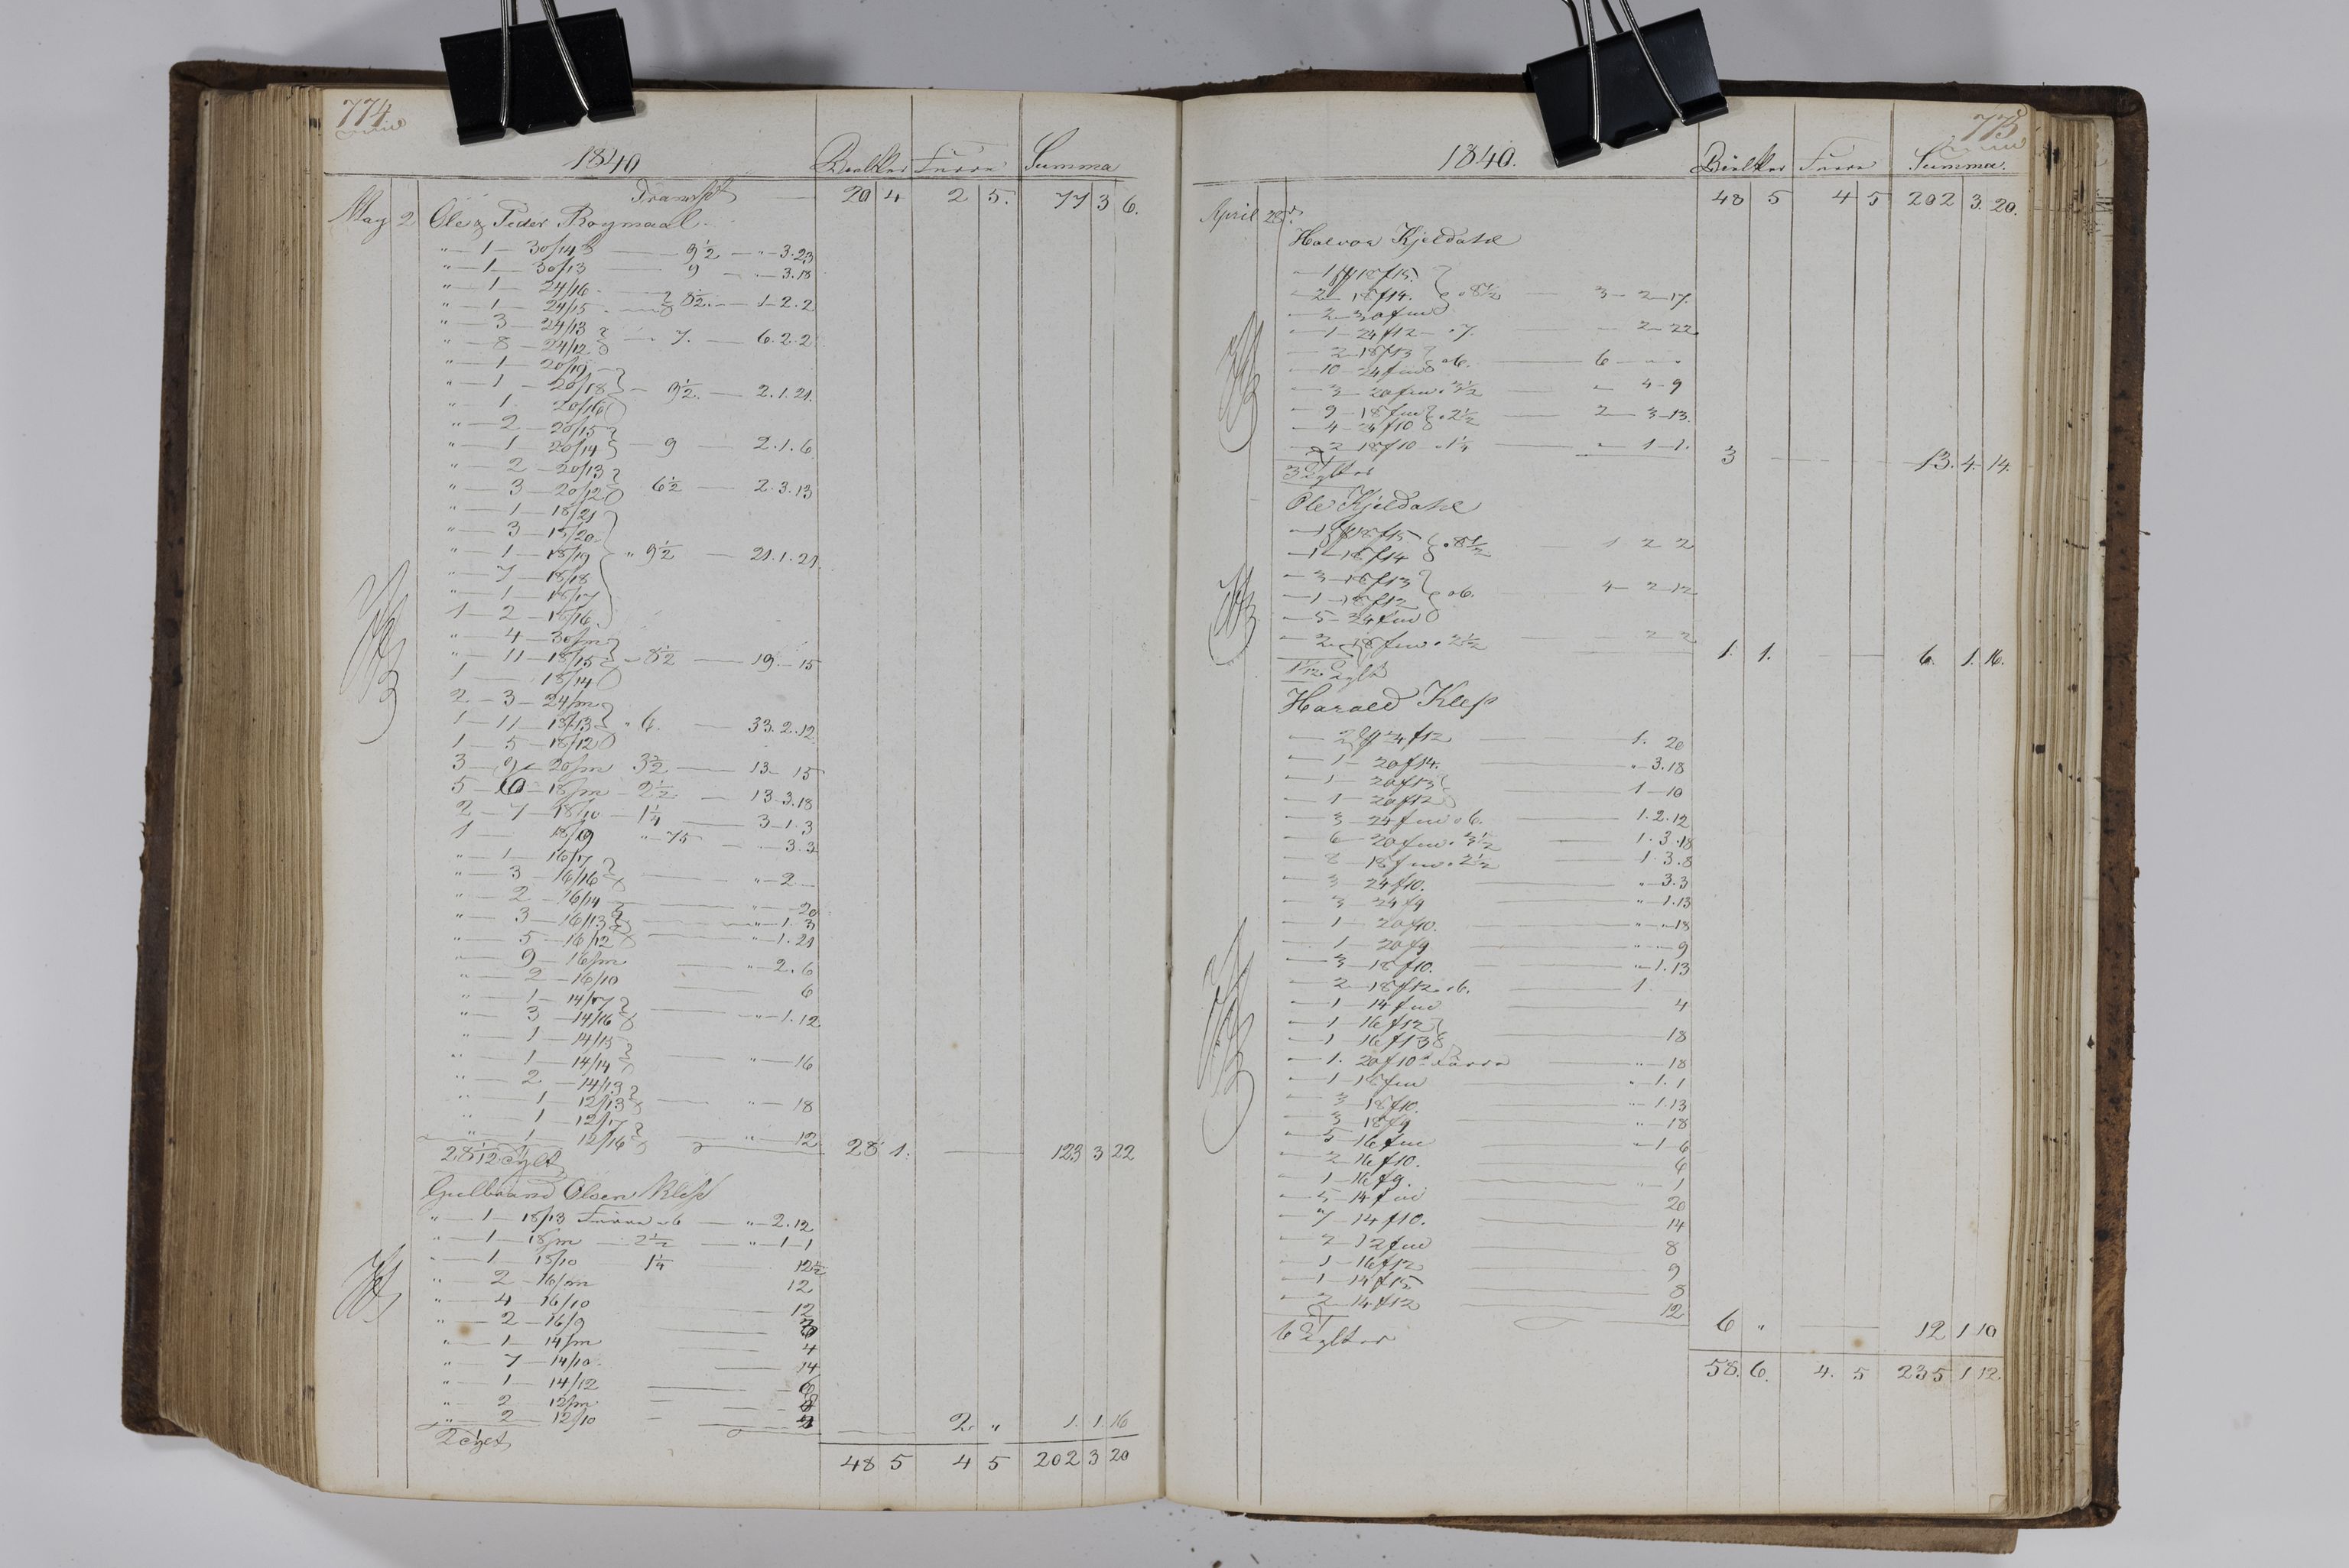 774
1840 Bielker Furre Summa
Transpt 20 4 2 5. 77 3 6.
May 2 Ole & Peder Rogmaal.
" 1 30/14 9½ " 3.23
" 1 30/13 9 3.18
" 1 24/16
" 1 24/15 8½ 1.2.2
" 3 24/13
" 8 24/12 7. 6.2.2
" 1 20/19
" 1 20/18 9½ 2.1.21.
" 1 20/16
" 2 20/15
" 1 20/14 9 2.1.6.
" 2 20/13
" 3 20/12 6½ 2.3.13
" 1 18/21
" 3 18/20
" 1 18/19 " 9½ 21.1.21.
" 7 18/18
" 1 18/17
1 2 18/16
" 4 30/m
" 11 18/15 8½ 19 15
1 18/14
2 3 24/m
1 11 18/13 " 6. 33.2.12.
1 5 18/12
3 9 20/m 3½ 13 15
5 10 18/m 2½ 13.3.18
2 7 18/10 1¼ 3.1.3
1 18/9 " 75 3.3
" 1 16/17
" 3 16/16 " 2
" 2 16/14 20
" 3 16/13 1.3
" 5 16/12 " 1.21
" 9 16/m " 2.6
" 2 16/10 6
" 1 14/17
" 3 14/16 " 1.12
" 1 14/15
" 1 14/14 " 16
" 2 14/13
" 1 12/13 " 18
" 1 12/17
" 1 12/16 " 12
28 1/12 Tylt 28 1. 123 3 22
Gulbrand Olsen Klep
" 1 18/13 Furre 6 " 2.12
" 1 18/m 2½ " 1 1
" 1 18/10 1¼ 12½
" 2 16/m 12
" 4 16/10 12
" 2 16/9
" 1 14/m 4
" 7 14/10 14
" 1 14/12 6
" 2 12/m 8
" 2 12/10
2 Tylt 2 " 1. 1.16
48 5 4 5 202 3 20
775
1840. Bielker Furre Summa.
48 5 4 5 202 3.20.
April 28
Halvor Kjeldahl
1 18f15
2 18f14. 8½ 3 2 17.
2 30fm
1 24f12 7. 2 22
2 18f13
10 24fm 6. 6 " "
3 20fm 3½ " 4 9
9 18fm 2½ 2 3 13.
4 24f10
2 18f10 1¼ 1 1.
3 Tylter 3 13. 4 14.
Ole Kjeldahl
1 18f15 8½ 1 2 2
1 18f14
3 18f13
1 18f12 6. 4 2 12
5 24fm
2 18fm 2½ 2 2
1 1/12 Tylt 1. 1. 6. 1. 16.
Harald Klep
2 24f12 1. 20
1 20f14. " 3.18
1 20f13
1 20f12 1 10
3 24fm 6. 1.2.12
6 20fm 3½ 1.3.18
8 18fm 2½ 1.3.8
3 24f10. " 3.3
3 24f9 " 1.13
1 20f10. " " 18
1 20f9 " " 9
3 18f10. " 1.13
2 18f12 6. 1
1 14fm 4
1 16f12
1 16f13 18
1. 20f10 " 18
1 18fm " 1.1
3 18f10. " 1.13
3 18f9 " 18
5 16fm " 1 6
2 16f10. 6
1 16f9. " 1
5 14fm 20
7 14f10. 14
2 12fm 8
1 16f12 9
1 14f15 8
2 14f12 12
6 Tylter 6 " 12 1 10
58. 6. 4. 5 235 1 12.